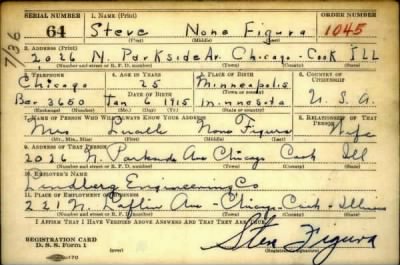 SERIAL NUMBER 1. Name (Print) ORDER NUMBER
64 Steve None Figura 1045
(First) (Middle) (Last)
7/36
2. Address (Print)
2026 N. Parkside Av. Chicago - Cook Ill
(Number and street or R. F. D. number) (Town) (County) (State)
3. Telephone 4. Age in Years 5. Place of Birth 6. Country of Citizenship
Chicago 25 Minneapolis
(Exchange) Date of Birth (Town or county)
Ber 3650 Jan 6 1915 Minnesota U. S. A.
(Number) (Mo.) (Day) (Yr.) (State or country)
7. Name of Person Who Will Always Know Your Address 8. Relationship of That Person
Mrs None Figura Wife
(Mr., Mrs., Miss) (First) (Middle) (Last)
9. Address of That Person
2026 N. Parkside Ave Chicago Cook Ill
(Number and street or R. F. D. number) (Town) (County) (State)
10. Employer's Name
Lindberg Engineering Co
11. Place of Employment or Business
221 N. Laflin Ave - Chicago - Cook - Illinois
(Number and street or R. F. D. number) (Town) (County) (State)
I Affirm That I Have Verified Above Answers and That They Are True.
REGISTRATION CARD
D. S. S. Form 1
Steve Figura